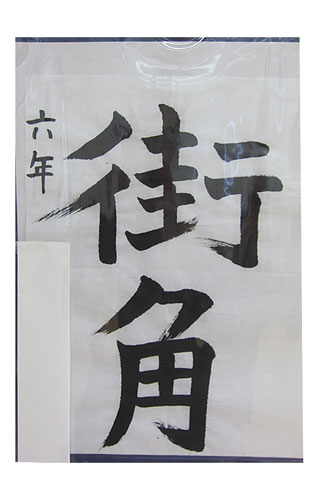 街角
六年